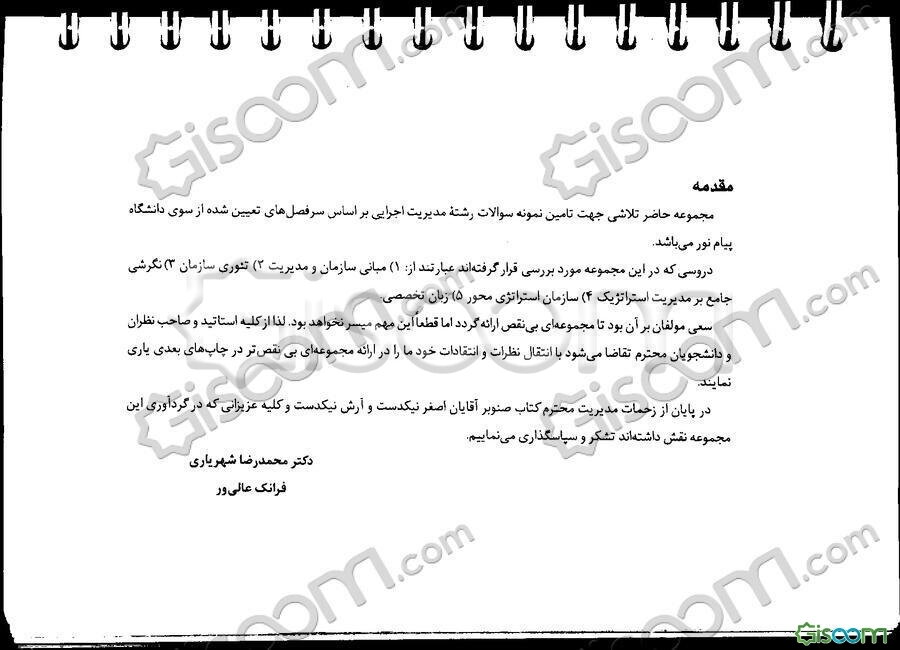 مقدمه
مجموعه حاضر تلاشی جهت تامین نمونه سوالات رشتهٔ مدیریت اجرایی بر اساس سرفصل‌های تعیین شده از سوی دانشگاه
پیام نور می‌باشد.
دروسی که در این مجموعه مورد بررسی قرار گرفته‌اند عبارتند از: ۱) مبانی سازمان و مدیریت ۲) تئوری سازمان ۳) نگرشی
جامع بر مدیریت استراتژیک ۴) سازمان استراتژی محور ۵) زبان تخصصی.
سعی مولفان بر آن بود تا مجموعه‌ای بی‌نقص ارائه گردد اما قطعاً این مهم میسر نخواهد بود. لذا از کلیه اساتید و صاحب نظران
و دانشجویان محترم تقاضا می‌شود با انتقال نظرات و انتقادات خود ما را در ارائه مجموعه‌ای بی نقص‌تر در چاپ‌های بعدی یاری
نمایند.
در پایان از زحمات مدیریت محترم کتاب صنوبر آقایان اصغر نیکدست و آرش نیکدست و کلیه عزیزانی که در گردآوری این
مجموعه نقش داشته‌اند تشکر و سپاسگذاری می‌نماییم.
دکتر محمدرضا شهریاری
فرانک عالی‌ور
Giscoom.com
Giscoom.com
Giscoom.com
Giscoom.com
Giscoom.com
Giscoom.com
Giscoom
Giscoom